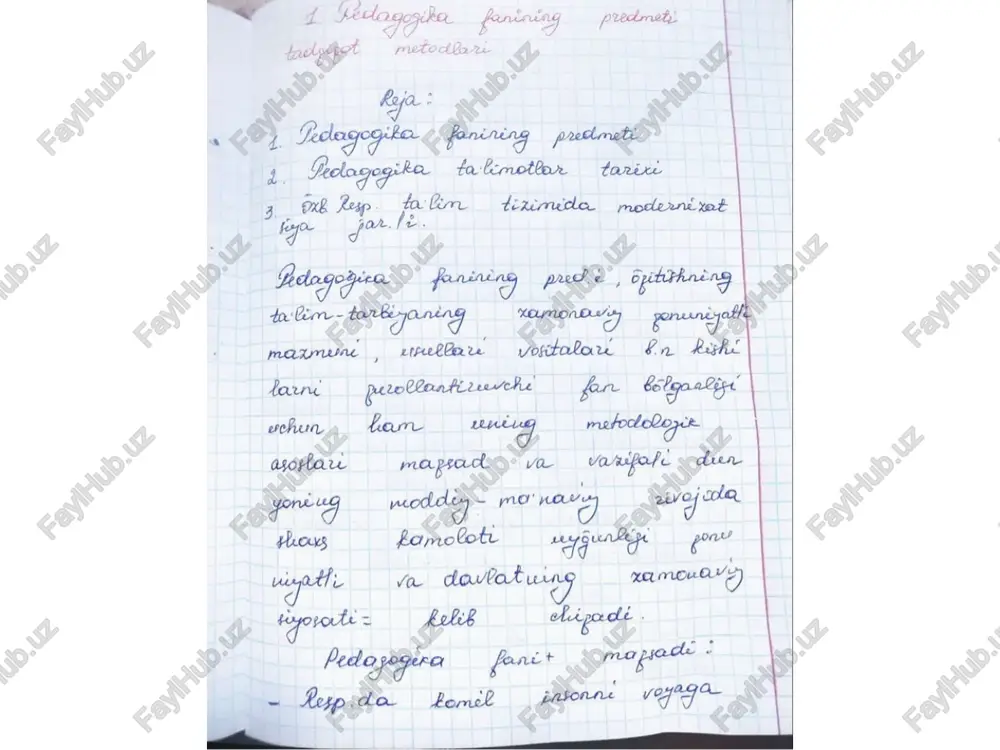 1. Pedagogika fanining predmeti
tadqiqot metodlari
Reja:
1. Pedagogika fanining predmeti
2. Pedagogika ta'limotlar tarixi
3. Özb. Resp. ta'lim tizimida modernizat
siya jar./i.
Pedagogika fanining pred.i, öqitishning
ta'lim-tarbiyaning zamonaviy qonuniyatli
mazmuni, usullari vositalari b.n kishi
larni qurollantiruvchi fan bölganligi
uchun ham uning metodologik
asoslari maqsad va vazifali dun
yoning moddiy-ma'naviy rivoj.da
shaxs kamoloti uyğunligi qonu
niyatli va davlatning zamonaviy
siyosati= kelib chiqadi.
Pedagogika fani+ maqsadi:
- Resp.da komil insonni voyaga
FaylHub.uz